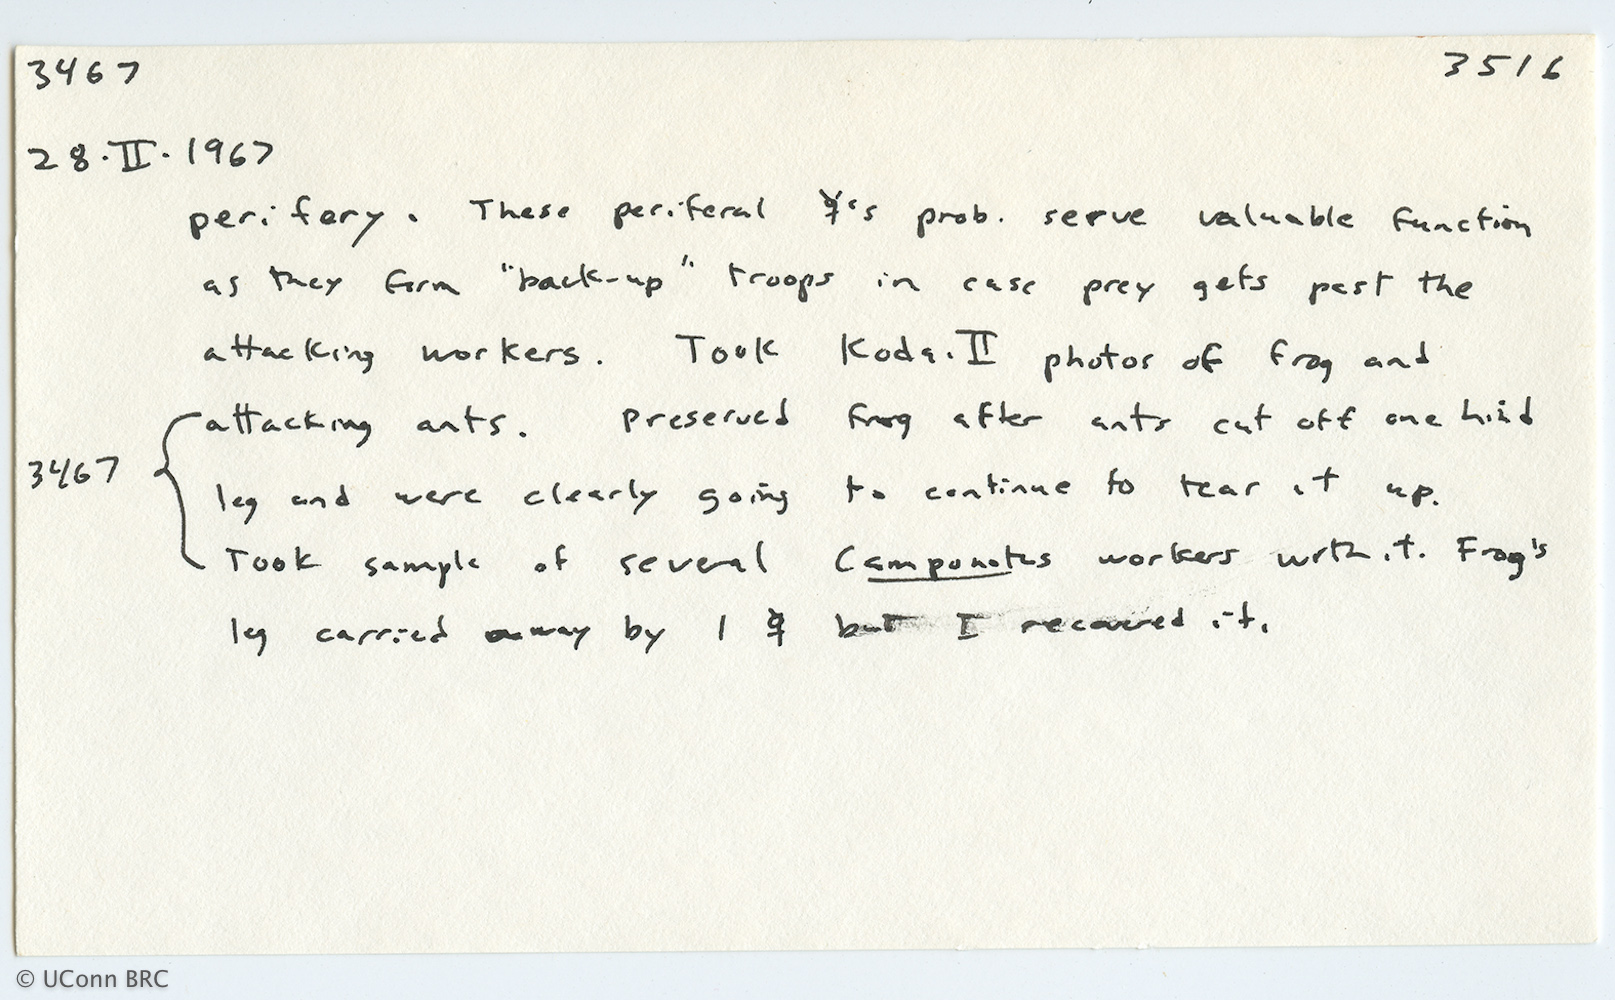 3467 3516
28·II·1967
perifery. These periferal ☿'s prob. serve valuable function
as they form "back-up" troops in case prey gets past the
attacking workers. Took Koda.II photos of frog and
attacking ants. Preserved frog after ants cut off one hind
3467
leg and were clearly going to continue to tear it up.
Took sample of several Camponotus workers with it. Frog's
leg carried away by 1 ☿ but I recovered it.
© UConn BRC